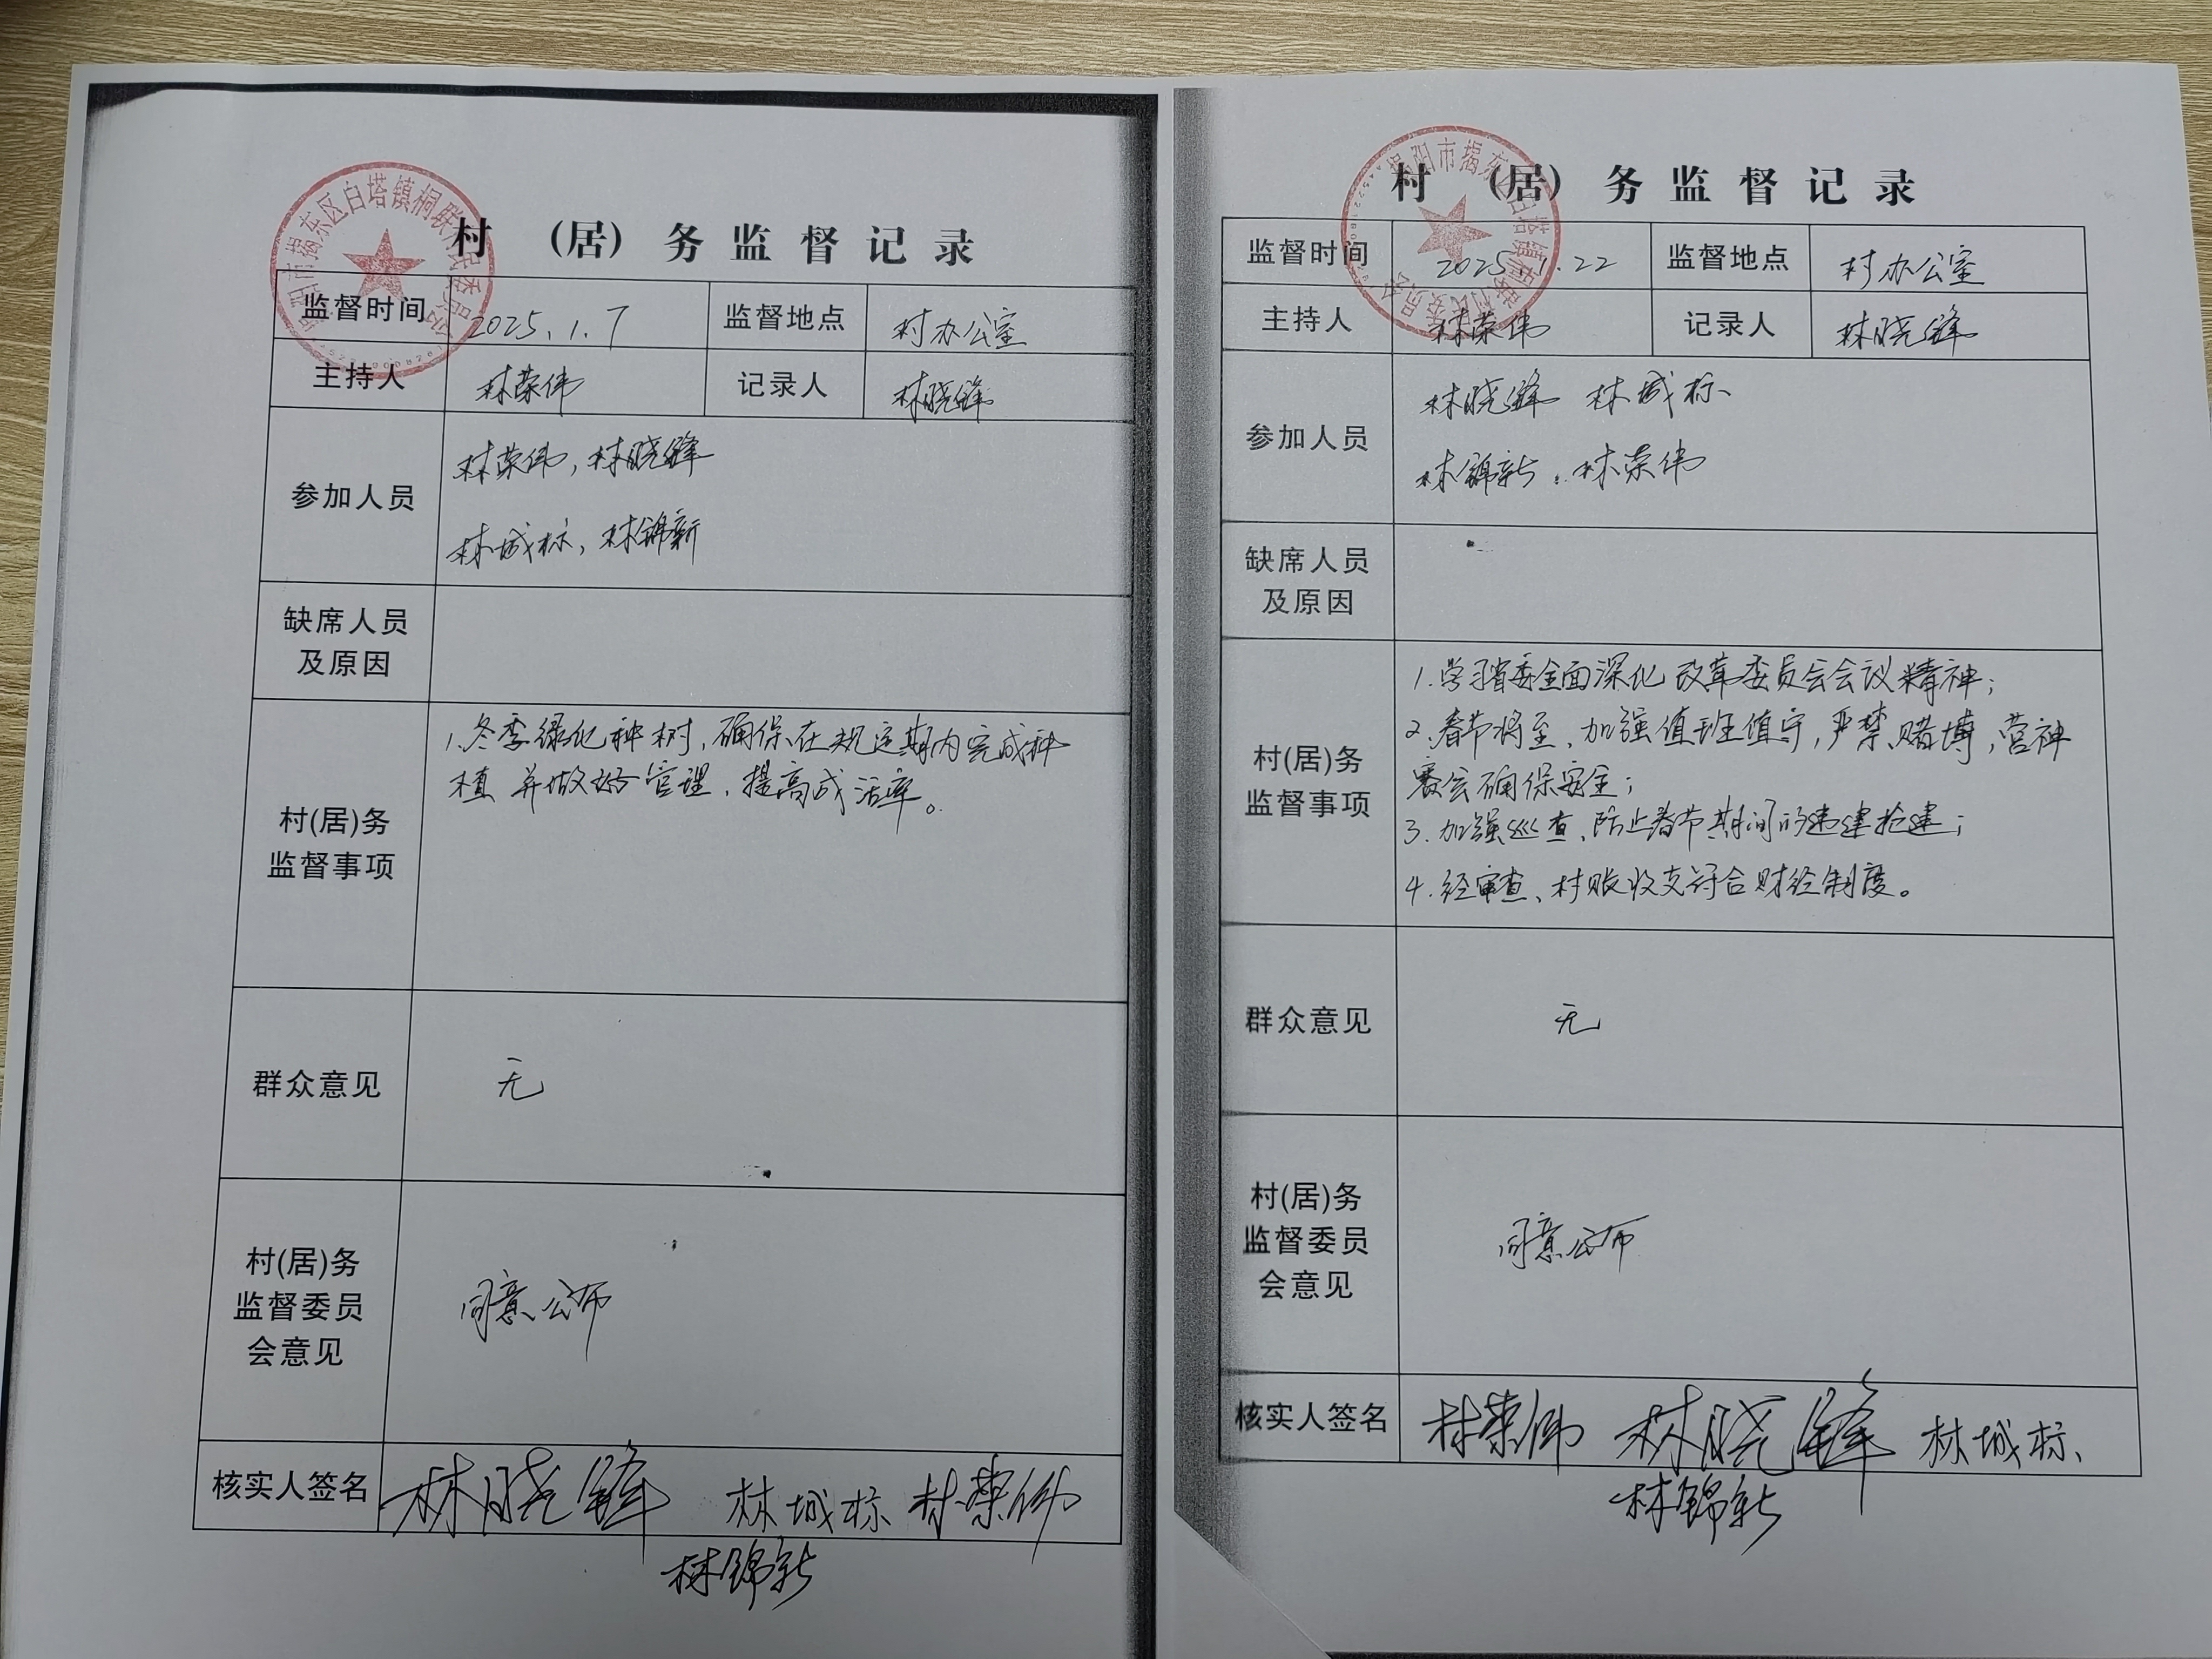 揭阳市揭东区白塔镇桐联村民委员会
村 （居） 务 监 督 记 录
监督时间 2025.1.7 监督地点 村办公室
主持人 林荣伟 记录人 林晓锋
参加人员
林荣伟，林晓锋
林城标，林锦新
缺席人员
及原因
村(居)务
监督事项
1.冬季绿化种树，确保在规定期内完成种
植并做好管理，提高成活率。
群众意见 无
村(居)务
监督委员
会意见
同意公布
核实人签名 林晓锋 林城标 林荣伟
林锦新
揭阳市揭东区白塔镇桐联村民委员会
村 （居） 务 监 督 记 录
监督时间 2025.1.22 监督地点 村办公室
主持人 林荣伟 记录人 林晓锋
参加人员
林晓锋 林城标、
林锦新、林荣伟
缺席人员
及原因
村(居)务
监督事项
1.学习省委全面深化改革委员会会议精神；
2.春节将至、加强值班值守，严禁赌博，营神
赛会确保安全；
3.加强巡查、防止春节期间的违建抢建；
4.经审查、村账收支符合财经制度。
群众意见 无
村(居)务
监督委员
会意见
同意公布
核实人签名 林荣伟 林晓锋 林城标、
林锦新